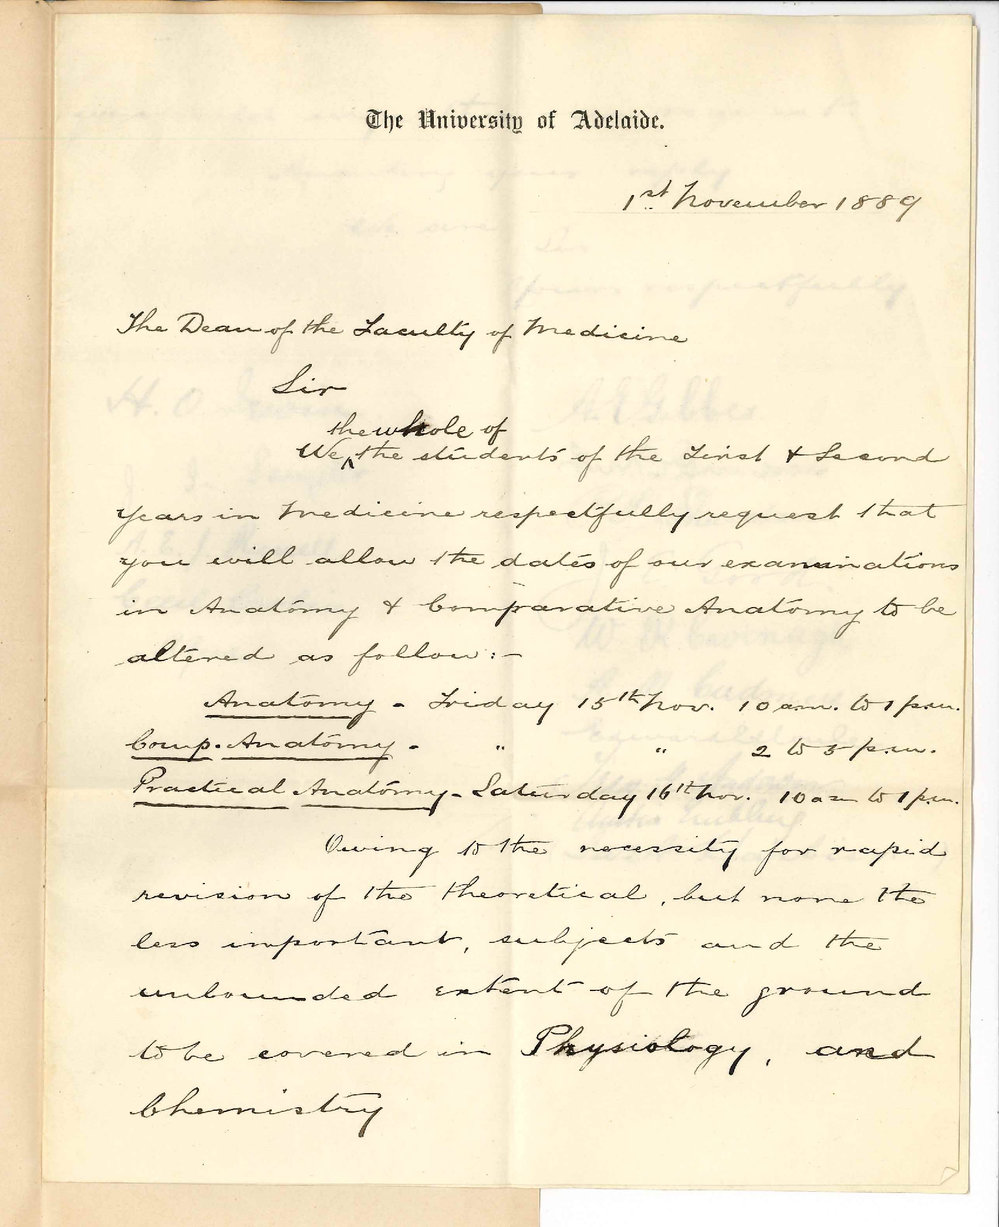 The University of Adelaide.
1st. November 1889
The Dean of the Faculty of Medicine
Sir
the whole of
We ^ the students of the First & Second
years in Medicine respectfully request that
you will allow the dates of our examinations
in Anatomy & Comparative Anatomy to be
altered as follow:-
Anatomy - Friday 15th Nov. 10 am. to 1 p.m.
Comp. Anatomy - " " 2 to 5 p.m.
Practical Anatomy - Saturday 16th Nov. 10 am to 1 p.m.
Owing to the necessity for rapid
revision of the theoretical, but none the
less important, subjects and the
unbounded extent of the ground
to be covered in Physiology, and
Chemistry